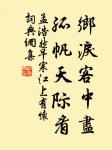 鄉淚客中盡
孤帆天際看
孟浩然早寒江上有懷
詞典網集